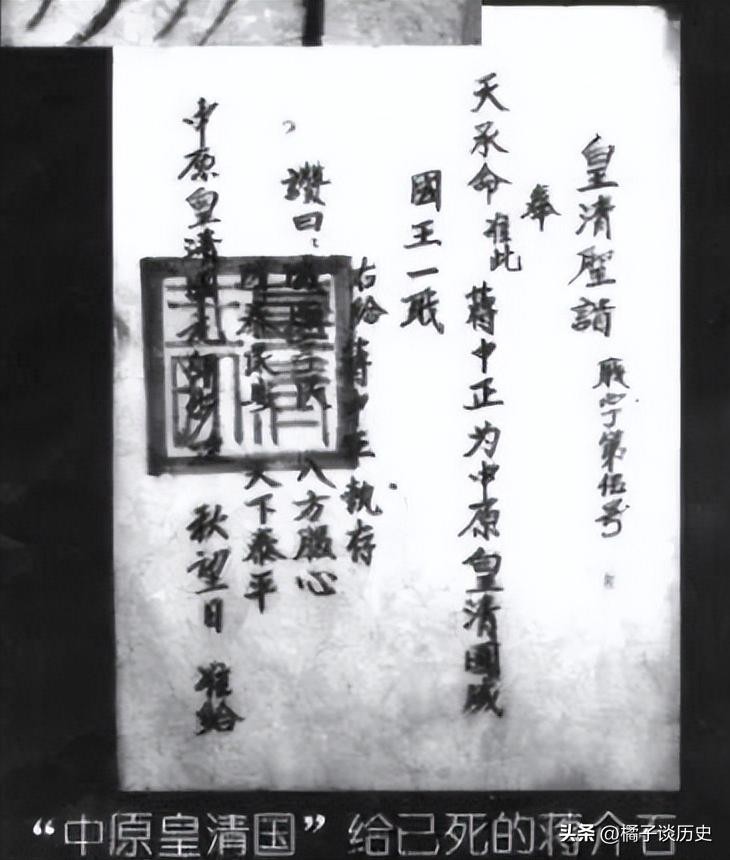 皇清聖 第伍号
奉
天承命 准此 蔣中正为中原皇清國威
國王一职
右给蔣中正執存
讚曰: 八方服心
國泰民安 天下泰平
中原皇清國元 秋望日 准给
“中原皇清国”给已死的蒋介石
头条 @橘子谈历史